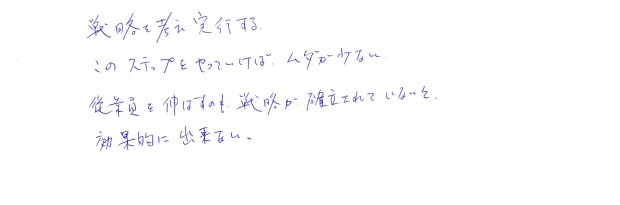 戦略を考え実行する。
このステップをやっていけば、ムダが少ない。
従業員を伸ばすのも、戦略が確立されていないと、
効果的に出来ない。